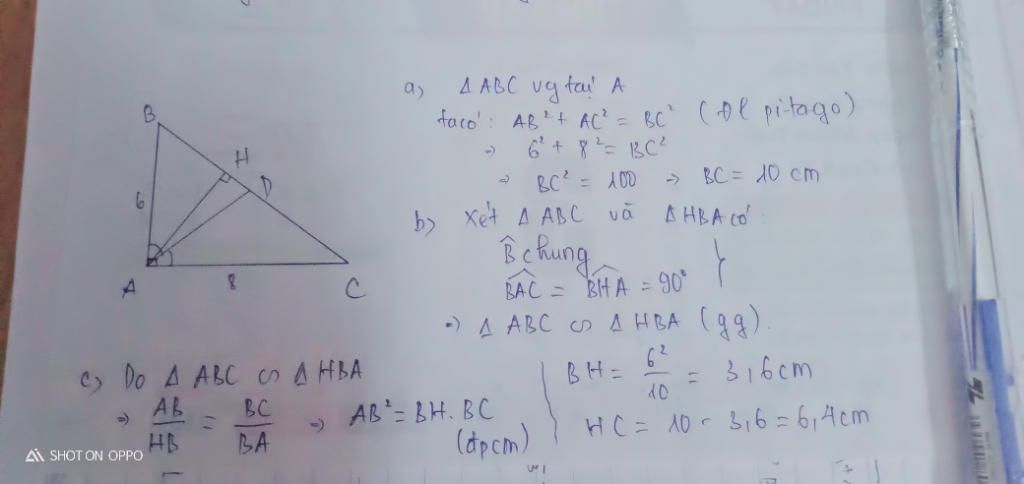 a) Δ ABC vg tại A
ta có: AB² + AC² = BC² (ĐL pi-ta-go)
⇒ 6² + 8² = BC²
⇒ BC² = 100 ⇒ BC = 10 cm
b) Xét Δ ABC và Δ HBA có:
B̂ chung
B͡AC = B͡HA = 90°
⇒ Δ ABC ∽ Δ HBA (gg).
c) Do Δ ABC ∽ Δ HBA
⇒ AB/HB = BC/BA ⇒ AB² = BH. BC
(đpcm)
BH = 6²/10 = 3,6cm
HC = 10 - 3,6 = 6,4cm
B
H
D
6
A
8
C
SHOT ON OPPO